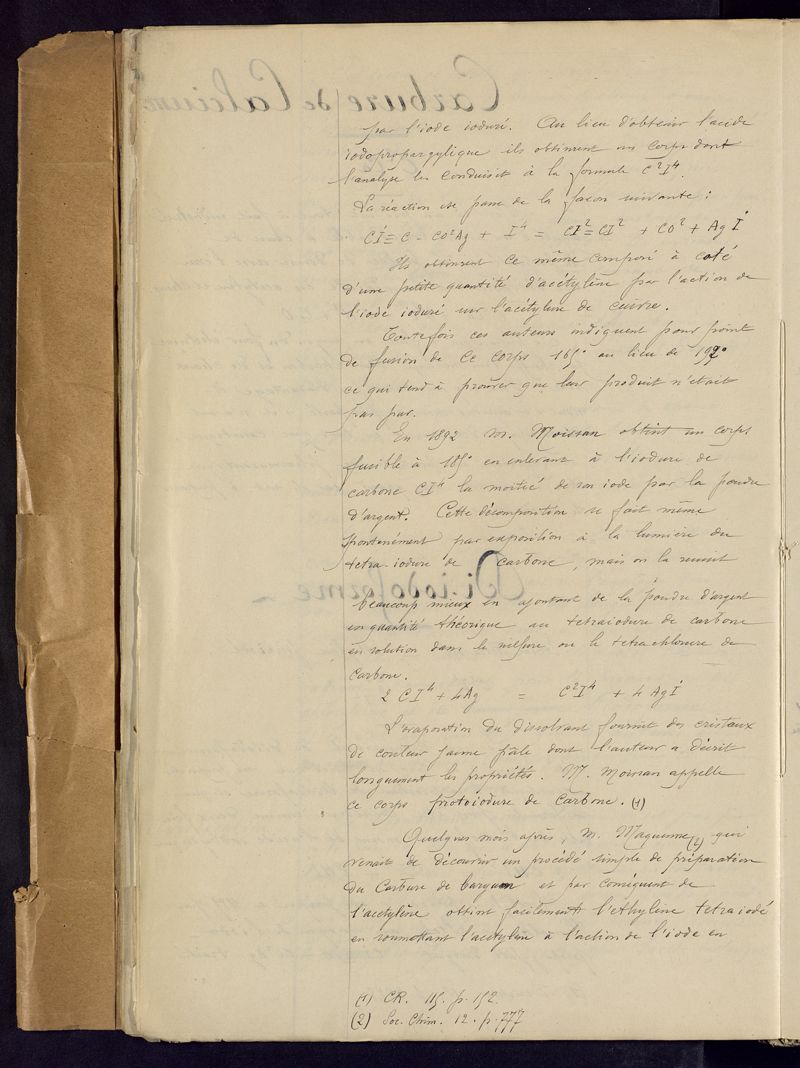 par l'iode ioduré. Au lieu d'obtenir l'acide
iodopropargylique ils obtinrent un corps dont
l'analyse les conduisit à la formule C²I⁴.
La réaction se passe de la façon suivante :
CI≡C - CO²Ag + I⁴ = CI²=CI² + CO² + AgI
Ils obtinrent ce même composé à coté
d'une petite quantité d'acétylène par l'action de
l'iode ioduré sur l'acétylène de cuivre.
Toutefois ces auteurs indiquent pour point
de fusion de ce corps 165° au lieu de 192°
ce qui tend à prouver que leur produit n'était
pas pur.
En 1892 M. Moissan obtint un corps
fusible à 185° en enlevant à l'iodure de
carbone CI⁴ la moitié de son iode par la poudre
d'argent. Cette décomposition se fait même
spontanément par exposition à la lumière du
tetra-iodure de carbone, mais on la réussit
beaucoup mieux en ajoutant de la poudre d'argent
en quantité théorique au tetraiodure de carbone
en solution dans le sulfure ou le tetrachlorure de
carbone.
2 CI⁴ + 4Ag = C²I⁴ + 4 AgI
L'evaporation du dissolvant fournit des cristaux
de couleur jaune pâle dont l'auteur a décrit
longuement les propriétés. M. Moissan appelle
ce corps protoiodure de carbone. (1)
Quelques mois après, M. Maquenne (2) qui
venait de découvrir un procédé simple de préparation
du Carbure de baryum et par conséquent de
l'acetylène obtint facilement l'éthylène tetraiodé
en soumettant l'acetylène à l'action de l'iode en
(1) CR. 115. p. 152.
(2) Soc. Chim. 12. p. 777
Carbure de Calcium
Di-iodoforme -